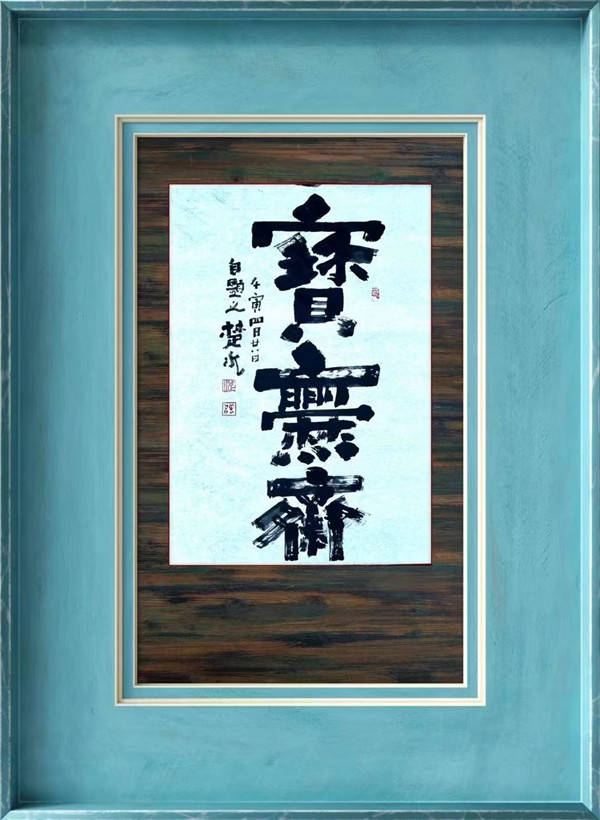 寶無齋
壬寅四月廿八日
自題之楚